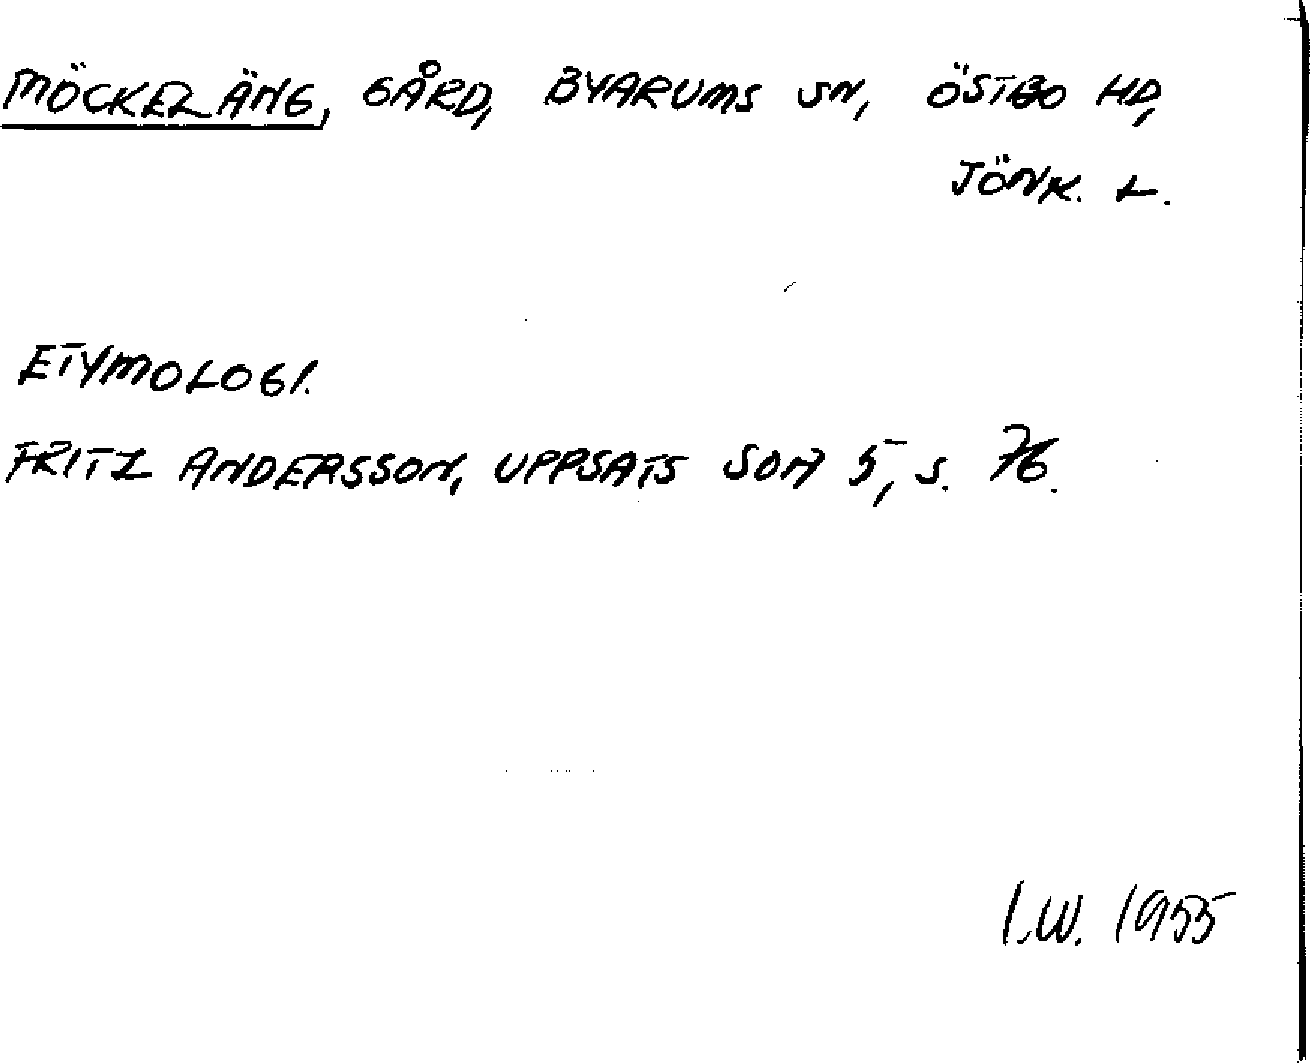 MÖCKELÄNG, GÅRD, BYARUMS SN, ÖSTBO HD,
JÖNK. L.
ETYMOLOGI.
FRITZ ANDERSSON, UPPSATS SOM 5, S. 76.
I.W. 1955